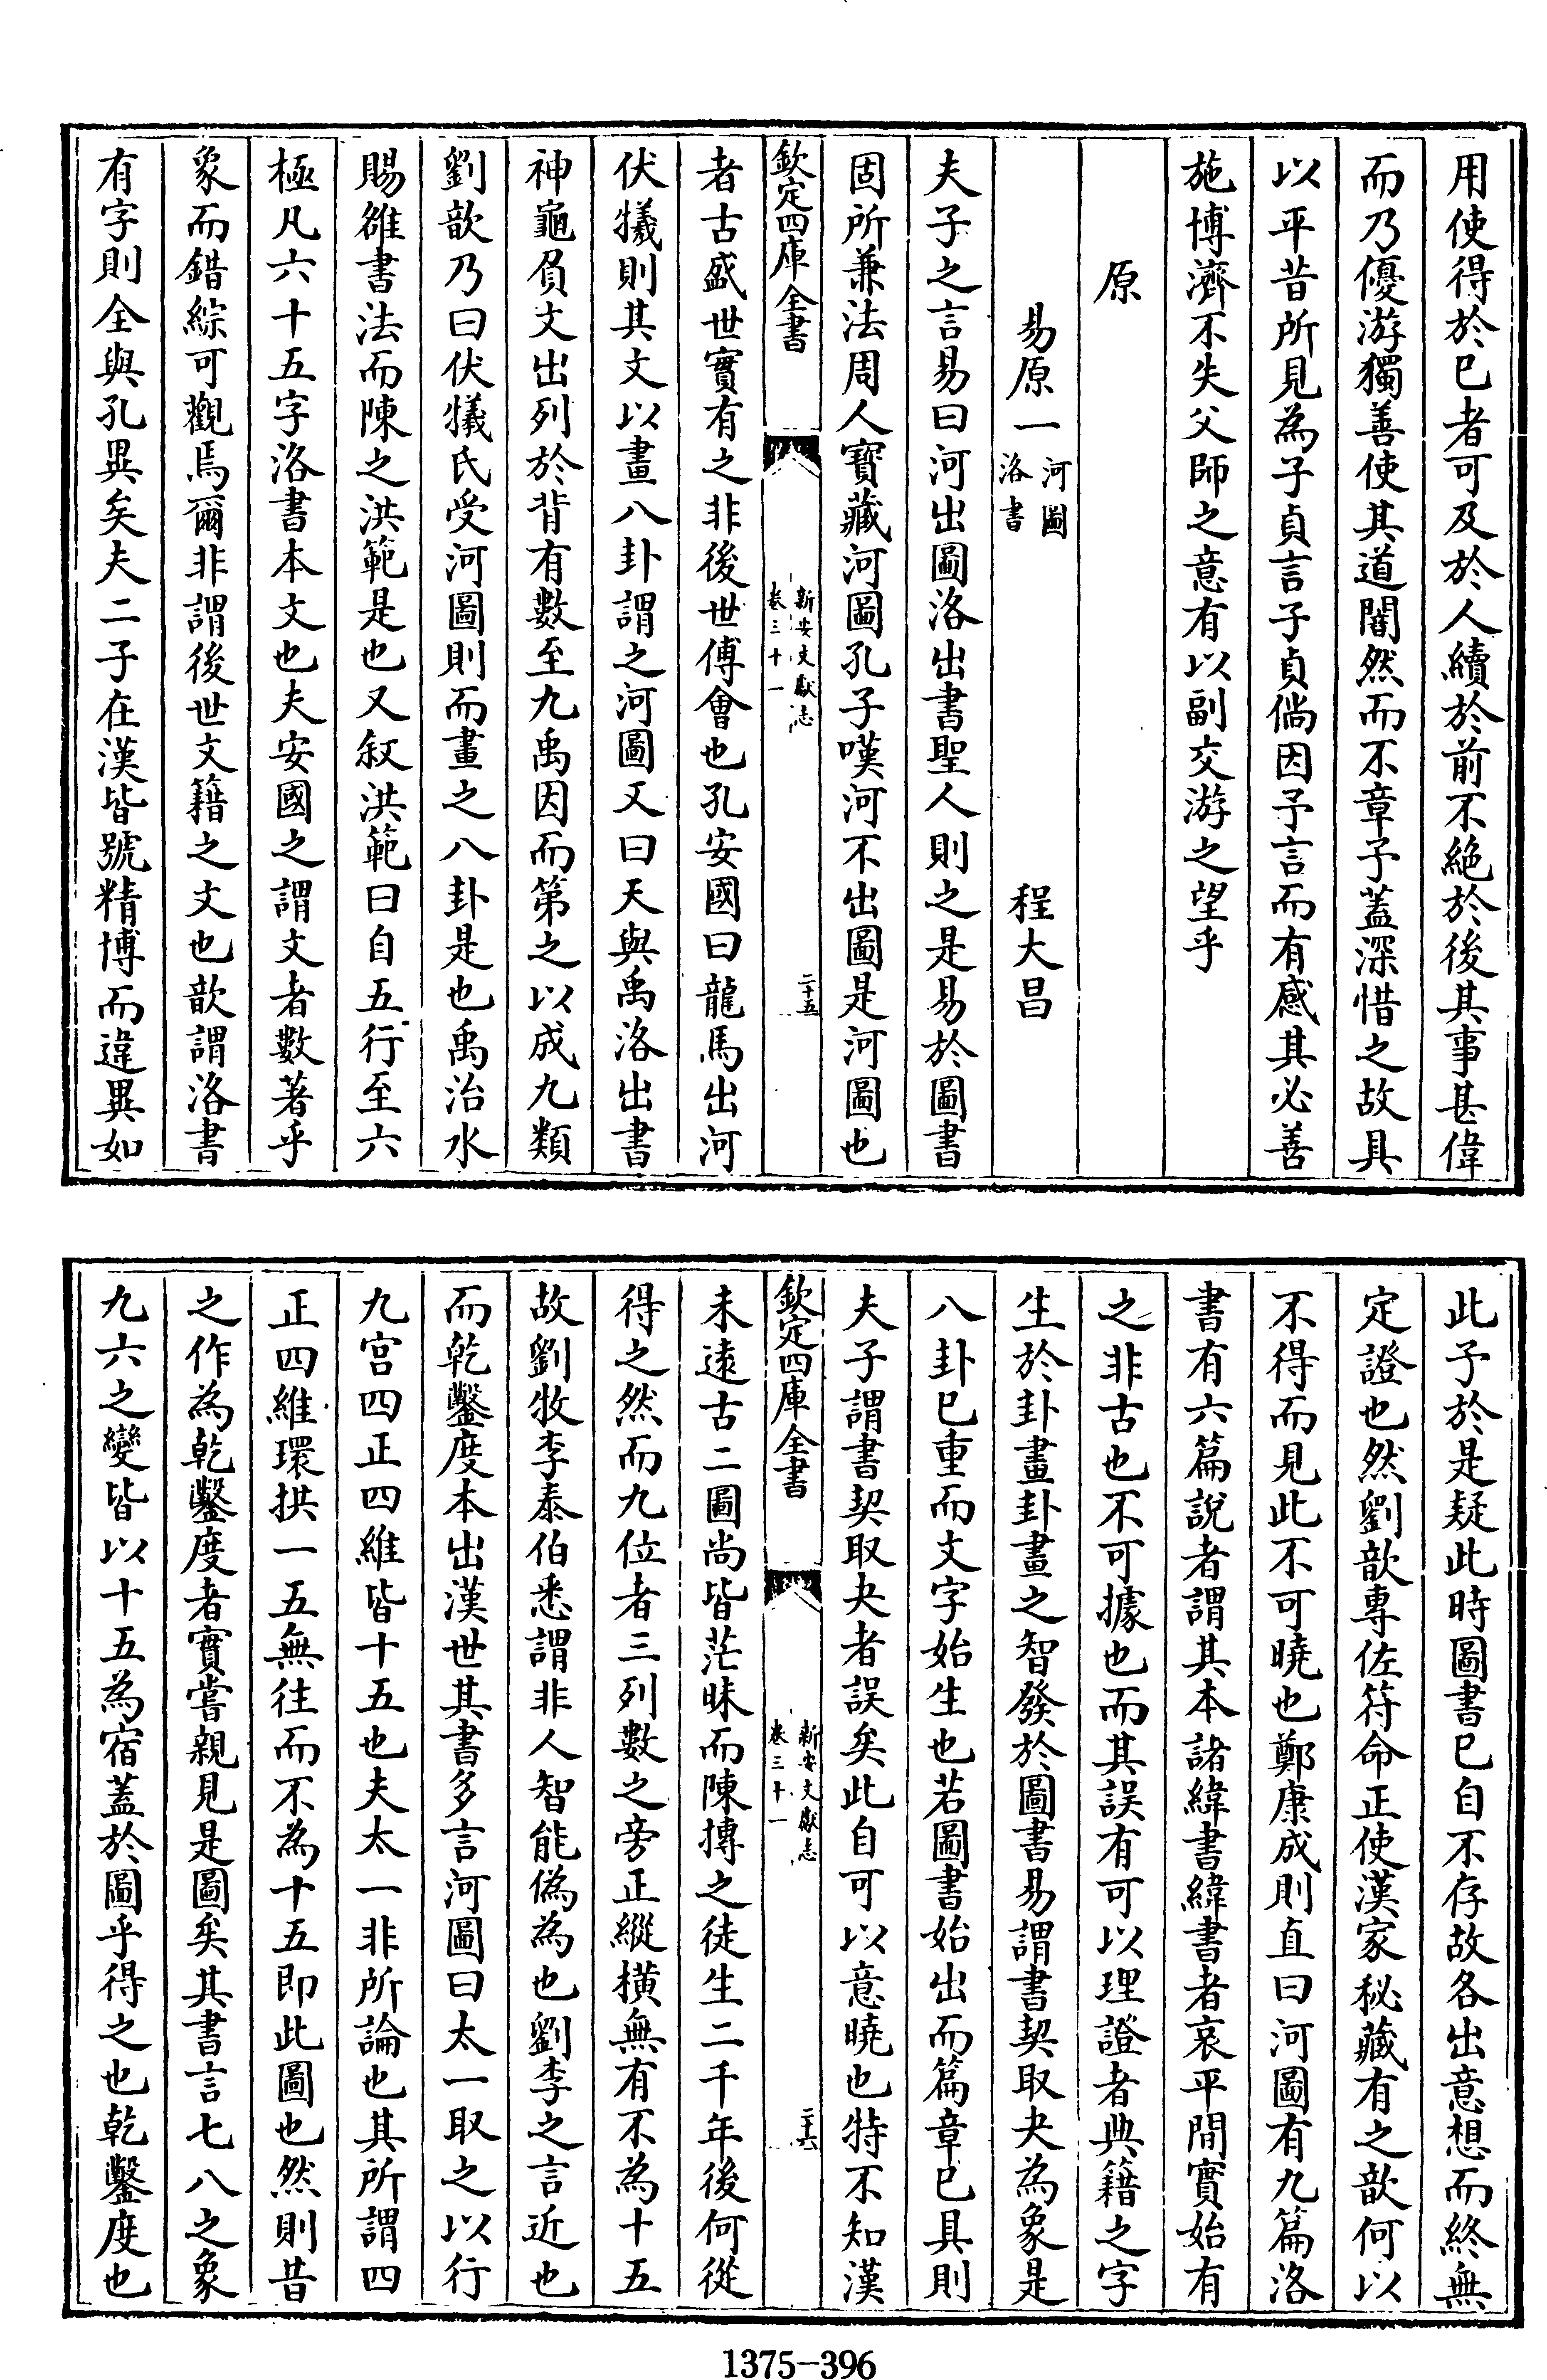 用使得於己者可及於人續於前不絶於後其事甚偉
而乃優游獨善使其道闇然而不章予蓋深惜之故具
以平昔所見為子貞言子貞倘因予言而有感其必善
施博濟不失父師之意有以副交游之望乎
原
易原一 河圖洛書 程大昌
夫子之言易曰河出圖洛出書聖人則之是易於圖書
固所兼法周人寶藏河圖孔子嘆河不出圖是河圖也
欽定四庫全書 新安文獻志 卷三十一 二十五
者古盛世實有之非後世傅會也孔安國曰龍馬出河
伏犧則其文以畫八卦謂之河圖又曰天與禹洛出書
神龜負文出列於背有數至九禹因而第之以成九類
劉歆乃曰伏犧氏受河圖則而畫之八卦是也禹治水
賜雒書法而陳之洪範是也又叙洪範曰自五行至六
極凡六十五字洛書本文也夫安國之謂文者數著乎
象而錯綜可觀焉爾非謂後世文籍之文也歆謂洛書
有字則全與孔異矣夫二子在漢皆號精博而違異如
此予於是疑此時圖書已自不存故各出意想而終無
定證也然劉歆專佐符命正使漢家秘藏有之歆何以
不得而見此不可曉也鄭康成則直曰河圖有九篇洛
書有六篇說者謂其本諸緯書緯書者哀平間實始有
之非古也不可據也而其誤有可以理證者典籍之字
生於卦畫卦畫之智發於圖書易謂書契取夬為象是
八卦已重而文字始生也若圖書始出而篇章已具則
夫子謂書契取夬者誤矣此自可以意曉也特不知漢
欽定四庫全書 新安文獻志 卷三十一 二十六
未遠古二圖尚皆茫昧而陳摶之徒生二千年後何從
得之然而九位者三列數之旁正縱橫無有不為十五
故劉牧李泰伯悉謂非人智能偽為也劉李之言近也
而乾鑿度本出漢世其書多言河圖曰太一取之以行
九宫四正四維皆十五也夫太一非所論也其所謂四
正四維環拱一五無往而不為十五即此圖也然則昔
之作為乾鑿度者實嘗親見是圖矣其書言七八之象
九六之變皆以十五為宿蓋於圖乎得之也乾鑿度也
1375-396